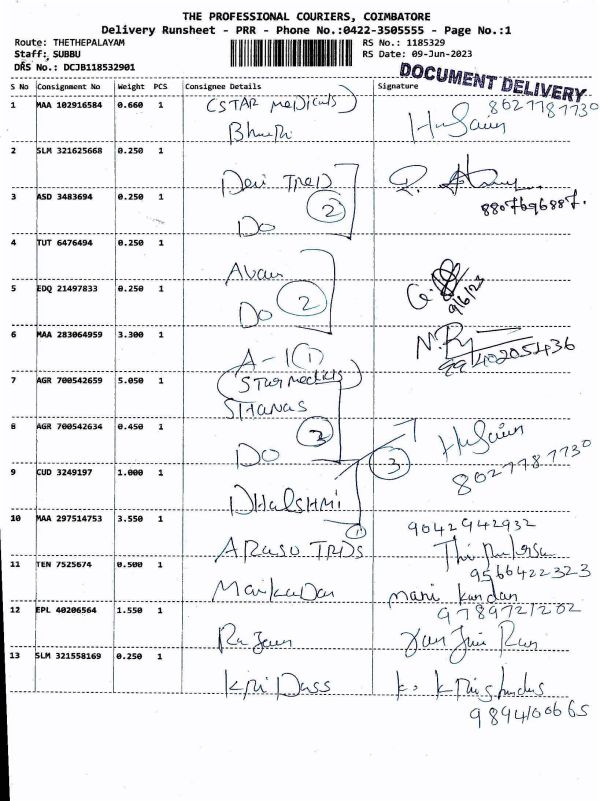 THE PROFESSIONAL COURIERS, COIMBATORE
Delivery Runsheet - PRR - Phone No.:0422-3505555 - Page No.:1
Route: THETHEPALAYAM
RS No.: 1185329
Staff: SUBBU
RS Date: 09-Jun-2023
DRS No.: DCJB118532901
DOCUMENT DELIVERY
S No Consignment No Weight PCS Consignee Details Signature
1 MAA 102916584 0.660 1 (STAR medicals) 8027787730
2 SLM 321625668 0.250 1
Devi TreD
3 ASD 3483694 0.250 1 2 8807696887.
Do
4 TUT 6476494 0.250 1
5 EDQ 21497833 0.250 1 2 9/6/23
Do
6 MAA 283064959 3.300 1
A-1 (1) 99402051436
7 AGR 700542659 5.050 1 (STAR medicals)
SHANAS
8 AGR 700542634 0.450 1
Do 3
9 CUD 3249197 1.000 1 8027787730
DHALSHMI
10 MAA 297514753 3.550 1 1 9042942932
ARASU TRDS
11 TEN 7525674 0.500 1 9566422323
mani kandan
12 EPL 40206564 1.550 1 9789721202
13 SLM 321558169 0.250 1
Kri Dass
9894100665